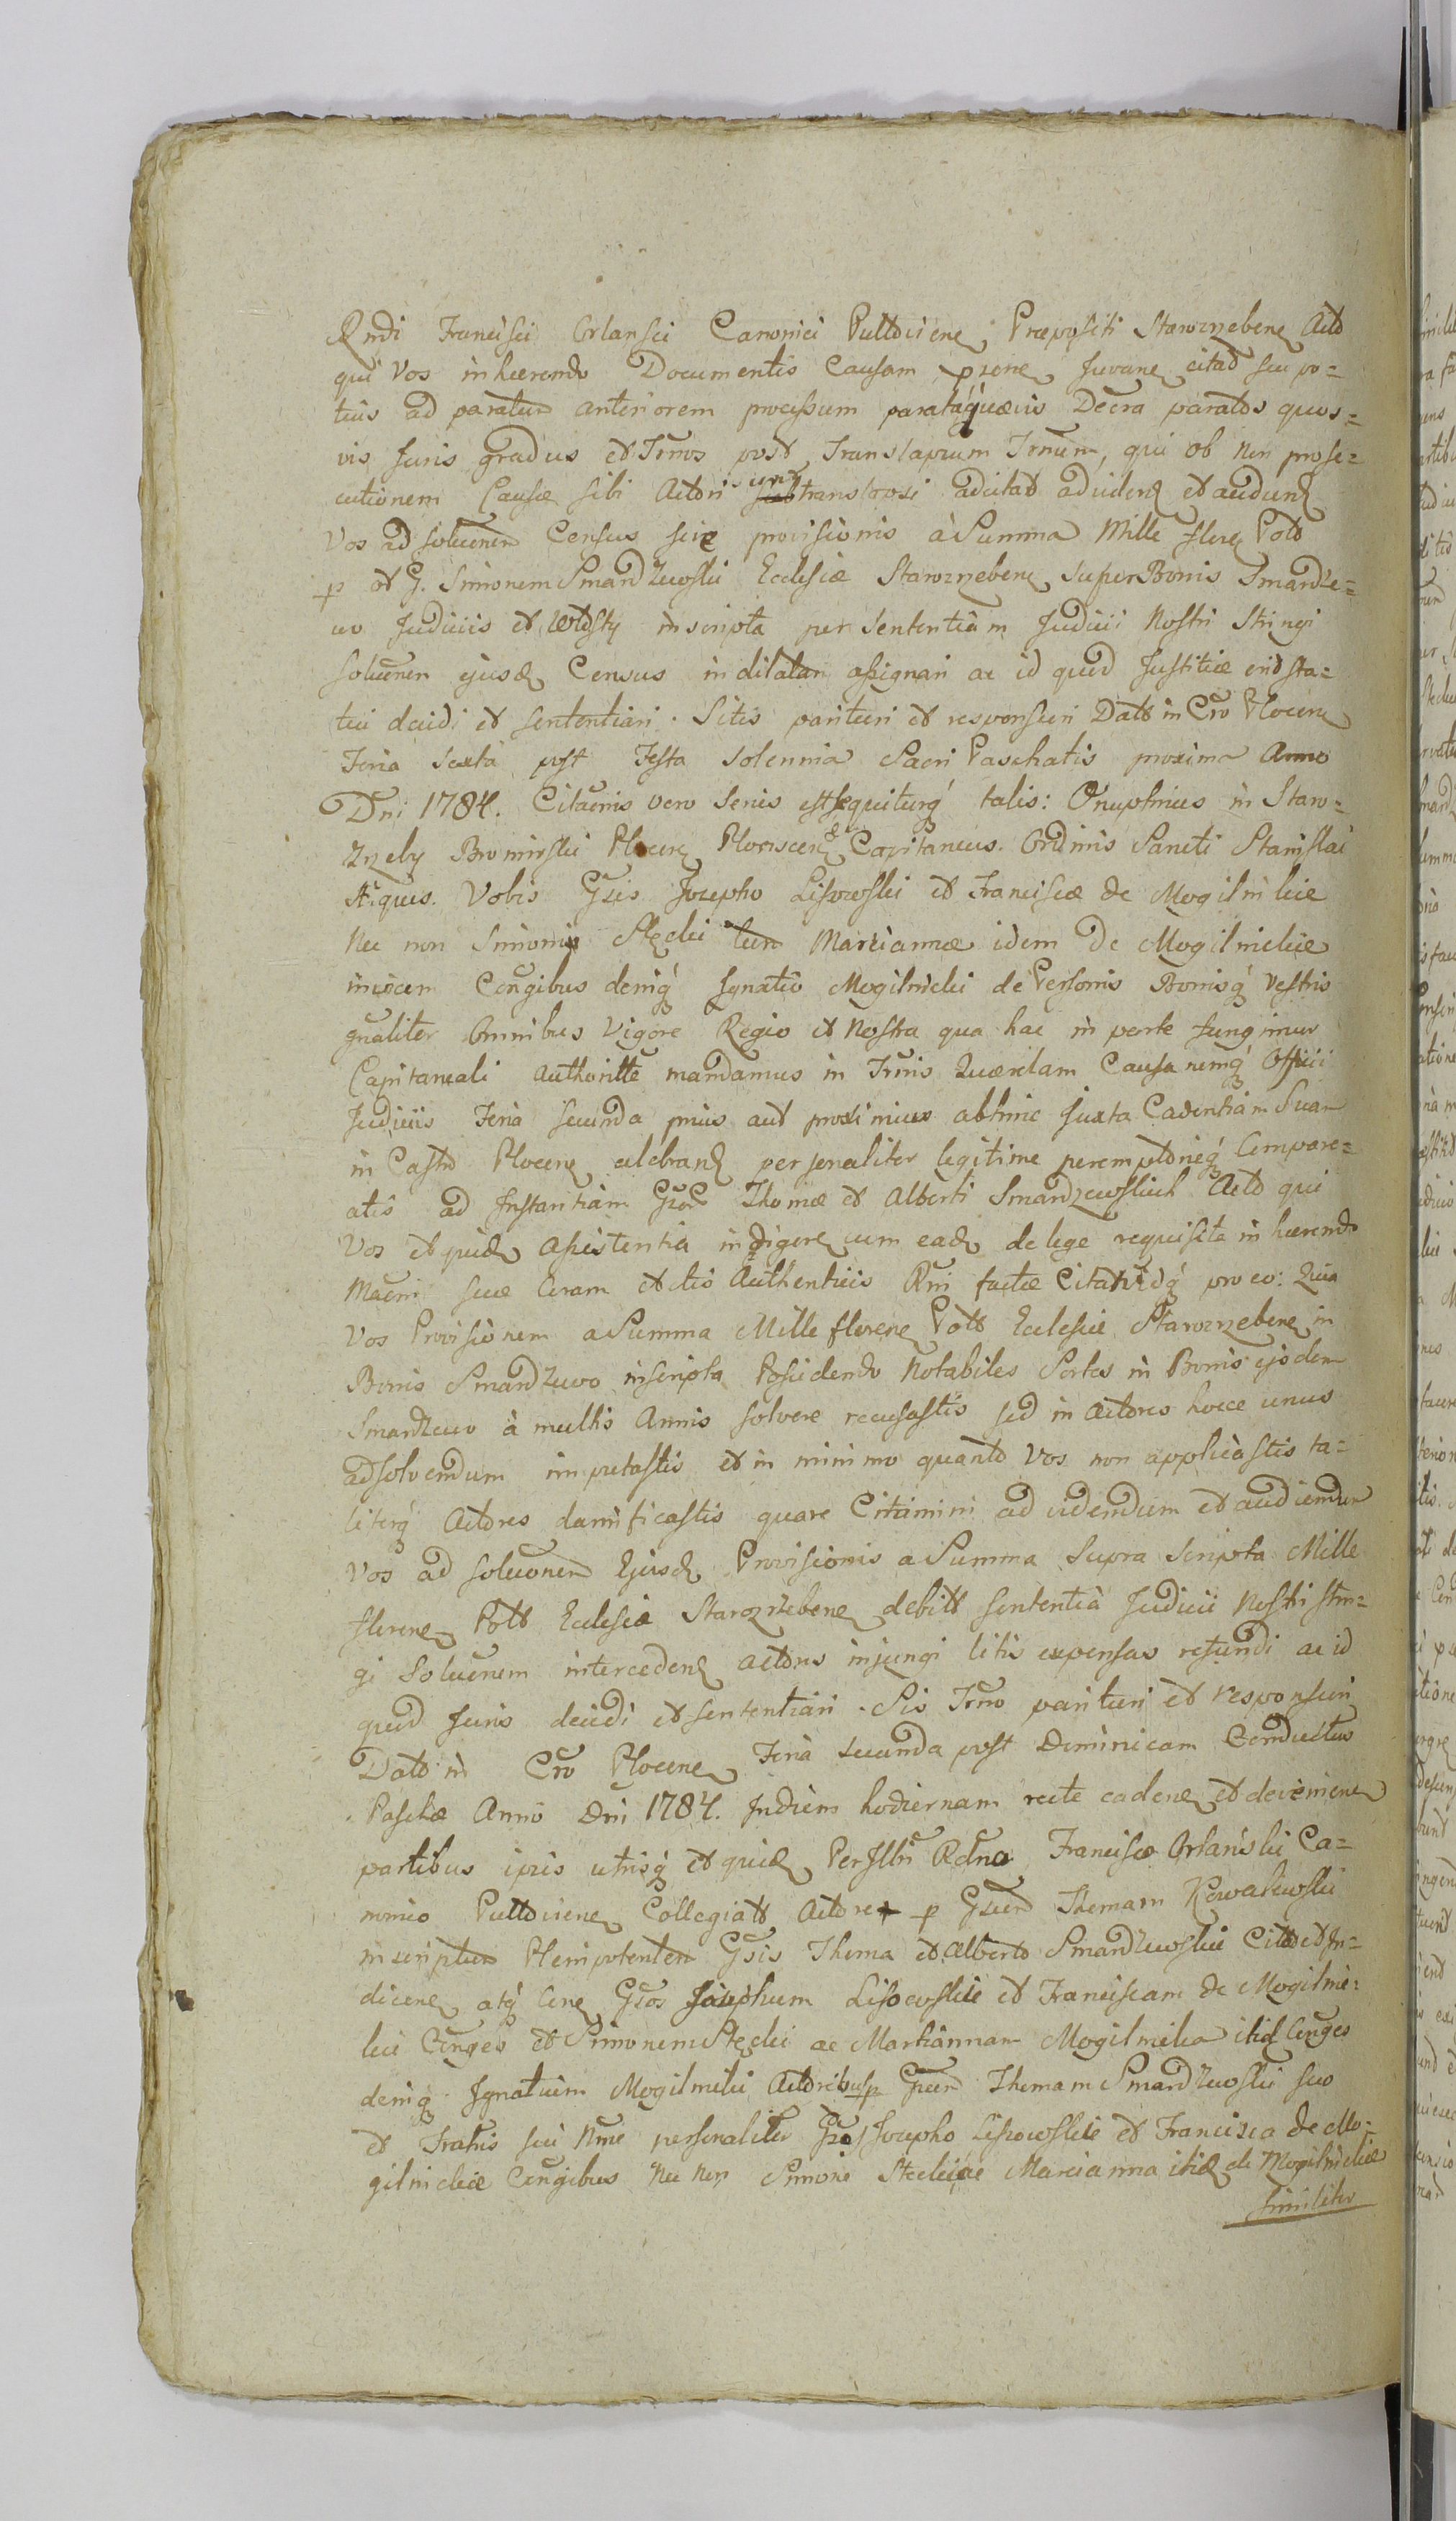 Rndi Francisci Orlansci Canonici Pultovien Præpositi Starozrzeben Acto
qui Vos inhærendo Documentis Causam pñone Juvane citat seu po=
tius ad paratum anteriorem processum parataq́ quævis Decra paratos quos=
vis Juris gradus et Trnos post Translapsum Trnum, qui ob non prose=
cutionem Causæ sibi Actori sunt translapsi adcitat ad viden et audiend
Vos ad solutionem Census sive provisionis à Summa Mille floren Poll
p ol G. Simonem Smardzewski Ecclesiæ Starozrzeben super Bonis Smardze=
wo Judiciis et inscripta per sententiam Judicii Nostri Stringi
solutionem ejusd Census indilatam assignari ac id quod Justitiæ erit sta=
tui decidi et sententiari. Sitis parituri et responsuri Datt in Cro Plocen
Feria Sexta post Festa solennia Sacri Paschatis proxima Anno
Dni 1784. Citaonis vero Seriis est sequiturq́ talis: Onuphrius in Staro=
zrzeby Bromirski Plocen Plonscen & Capitaneus. Ordinis Sancti Stanislai
Æques. Vobis Gsis Josepho Lisowski et Franciscæ de Mogilnikie
Nec non Simoni Steckii tum Mariannæ idem de Mogilnickie
invicem Conjgibus deniq́ Ignatio Mogilnicki de Personis Bonisq́ Vestris
gnaliter Omnibus Vigore Regio et Nostra qua hac in parte fungimur
Capitaneali Authoritte mandamus in Trnis Querelam Causarumq́ Officii
Judiciis Feria secunda prius aut proximius abhinc juxta Cadentiam Suam
in Castro Plocen celebrand personaliter legitime peremptorieq́ Compare=
atis ad Instantiam Gsor Thomæ et Alberti Smardzewskich Acto qui
Vos et quid assistentia indigere cum ead de lege requisita inhærendo
Maeni suæ Coram actis Authenticis Rni factæ Citatidq́ pro eo: Quia
Vos Provisionem a Summa Mille floren Poll Ecclesiæ Starozrzeben in
Bonis Smardzewo inscripta Possidendo Notabiles Sortes in Bonis ejsdem
Smardzewo à multis Annis solvere recusastis sed in Actores hocce onus
adsolvendum imputastis et in minimo quanto Vos non applicastis ta=
literq́ Actores damnificastis quare Citamini ad videndum et audiendum
Vos ad solutionem Ejusd Provisionis a Summa Supra Scripta Mille
floren Poll Ecclesiæ Starozrzeben debitt sententia Judicii Nostri strin=
gi Solutionem interceden actores injungi litis expensas refundi ac id
quod Juris decidi et sententiari. Sis Trno parituri et responsuri
Datt in Cro Plocen Feria secunda post Dominicam Conductus
Paschæ Anno Dni 1784. In diem hodiernam recte caden et devenien
partibus ipsis utrisq́ et quid PerIllri Rdna Francisco Orlanski Ca=
nonico Pultovien Collegiatt Actore p Gsum Thomam Kowalewski
inscriptum Plenipotentem Gsis Thoma et Alberto Smardzewskie Citt et In=
dicen atq́ Cone Gsos Josephum Lisowskie et Franciscam de Mogilni=
kie Conges et Simonem Stecki ac Mariannam Mogilnika itid Conges
deniq́ Ignatium Mogilnicki Actoribus p Gsum Thomam Smardzewski suo
et Fratris sui Nme personaliter Gso Josepho Lisowskie et Francisca de Mo=
gilnickie Congibus Nec Non Simone Steckiae Marianna itid de Mogilnickie
Similiter